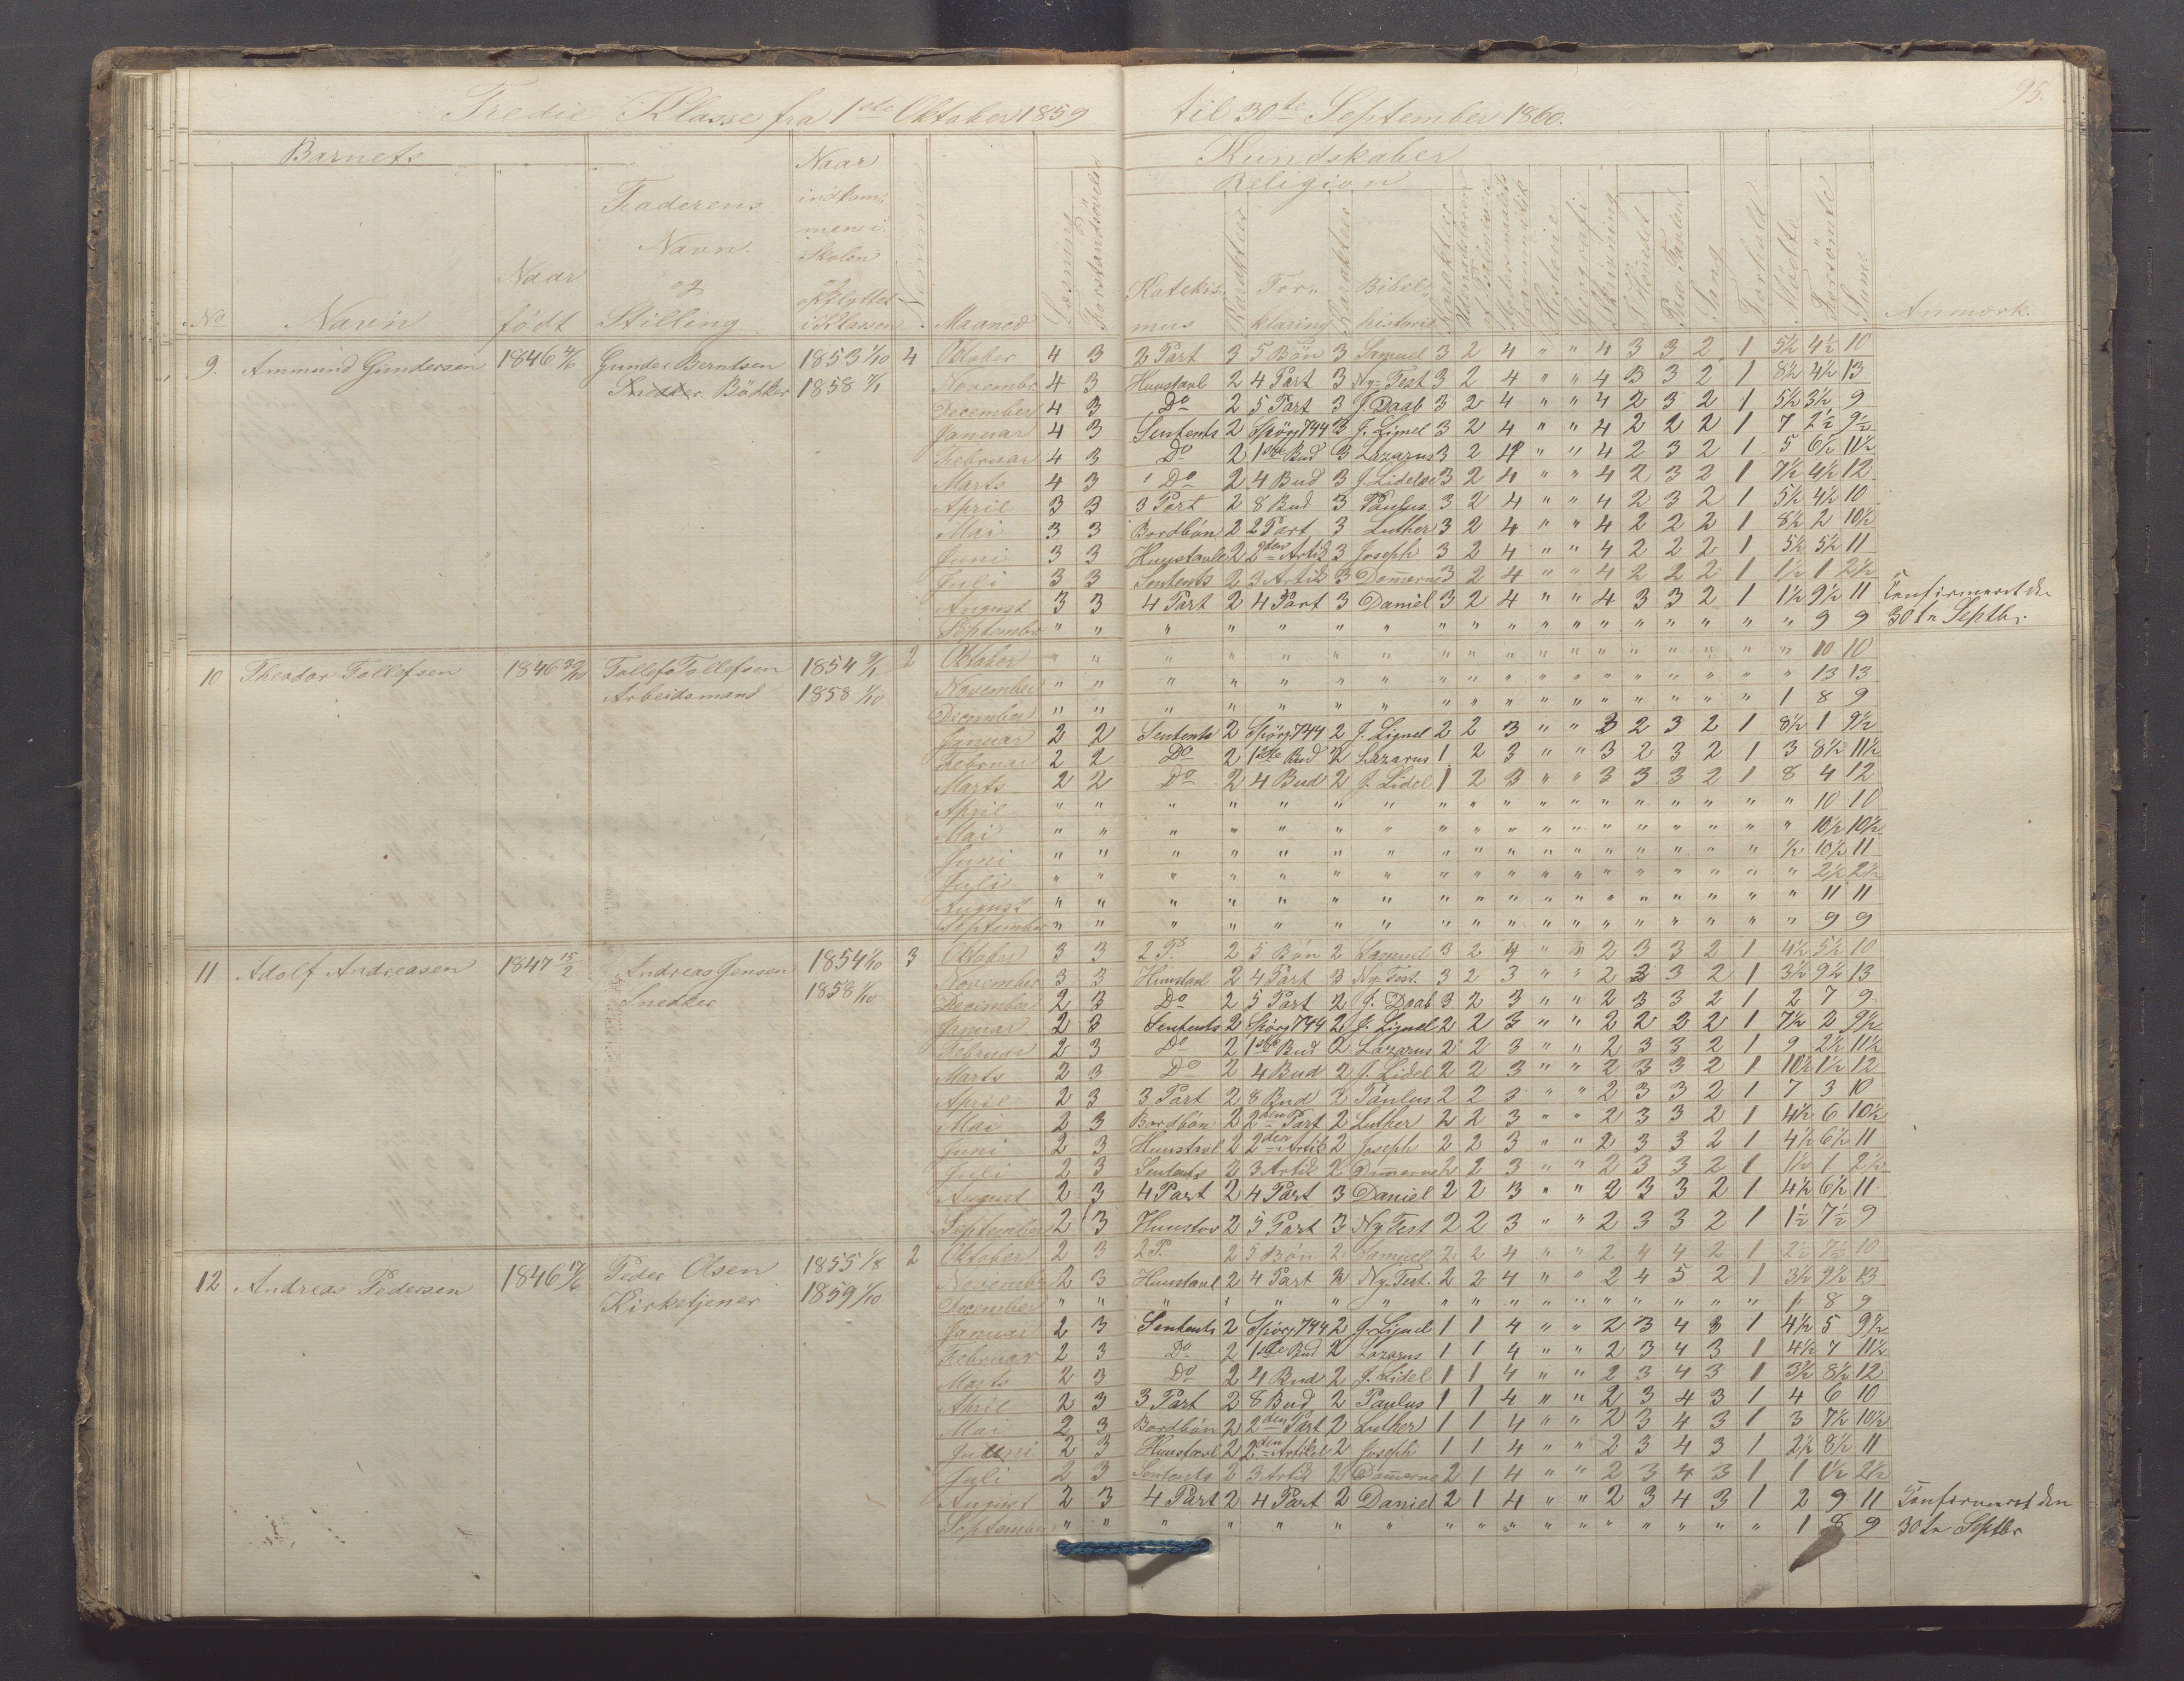 95.
Tredie Klasse fra 1ste Oktober 1859 til 30te September 1860.
Barnets Kundskaber
Religion
No Navn Naar født Faderens Navn og Stilling Naar indkommen i Skolen og opflyttet i Klassen Maaned Læsning Forstandsøvelse Katekismus Karakter Forklaring Karakter Bibelhistorie Karakter Historie Geografi Skrivning Sang Forhold Mødte Forsømte Sum. Anmærk.
9. Ammund Gundersen 1846 Gunder Berntsen 1853 1/10 4 Oktober 4 3 2 Part 3 5 Bøn 3 Samuel 3 2 4 " " 4 3 3 2 1 5½ 4½ 10
Bødker 1858 November 4 3 Huustavl 2 4 Part 3 Ny-Test 3 2 4 " " 4 3 3 2 1 8½ 4½ 13
December 4 3 Do 2 5 Part 3 J. Daab 3 2 4 " " 4 2 3 2 1 5½ 3½ 9
Januar 4 3 Sentents 2 Spörg 744 3 J. Lignel 3 2 4 " " 4 2 2 2 1 7 2½ 9½
Februar 4 3 Do 2 1ste Bud 3 Lazarus 3 2 4 " " 4 2 3 2 1 5 6½ 11½
Marts 4 3 Do 2 4 Bud 3 J. Lidelse 3 2 4 " " 4 2 3 2 1 7½ 4½ 12
April 3 3 3 Part 2 8 Bud 3 Paulus 3 2 4 " " 4 2 3 2 1 5½ 4½ 10
Mai 3 3 Bordbøn 2 2 Part 3 Luther 3 2 4 " " 4 2 2 2 1 8½ 2 10½
Juni 3 3 Huustavle 2 2den Artik 3 Joseph 3 2 4 " " 4 2 2 2 1 5½ 5½ 11
Juli 3 3 Sentents 2 3 Artik 3 Dommerne 3 2 4 " " 4 2 2 2 1 1½ 1 2½
August 3 3 4 Part 2 4 Part 3 Daniel 3 2 4 " " 4 3 3 2 1 1½ 9½ 11 Confirmeret den
September " " " " " " " " " " " " " " " " " " 9 9 30te Septbr.
10 Theodor Tollefsen 1846 Tollef Tollefsen 1854 9/1 2 Oktober " " " " " " " " " " " " " " " " " " 10 10
Arbeidsmand 1858 1/10 November " " " " " " " " " " " " " " " " " " 13 13
December " " " " " " " " " " " " " " " " " 1 8 9
Januar 2 2 Sentents 2 Spörg 744 2 J. Lignel 2 2 3 " " 3 2 3 2 1 8½ 1 9½
Februar 2 2 Do 2 1ste Bud 2 Lazarus 1 2 3 " " 3 2 3 2 1 3 8½ 11½
Marts 2 2 Do 2 4 Bud 2 J. Lidel 1 2 3 " " 3 3 3 2 1 8 4 12
April " " " " " " " " " " " " " " " " " " 10 10
Mai " " " " " " " " " " " " " " " " " " 10½ 10½
Juni " " " " " " " " " " " " " " " " " ½ 10½ 11
Juli " " " " " " " " " " " " " " " " " " 2½ 2½
August " " " " " " " " " " " " " " " " " " 11 11
September " " " " " " " " " " " " " " " " " " 9 9
11 Adolf Andreasen 1847 15/2 Andreas Jensen 1854 1/10 3 Oktober 3 3 2 P. 2 5 Bøn 2 Samuel 3 2 4 " " 2 3 3 2 1 4½ 5½ 10
Snedker 1858 1/10 November 3 3 Huustavl 2 4 Part 3 Ny. Test. 3 2 3 " " 2 3 3 2 1 3½ 9½ 13
December 2 3 Do 2 5 Part 2 J. Daab 3 2 3 " " 2 3 3 2 1 2 7 9
Januar 2 3 Sentents 2 Spörg 744 2 J. Lignel 2 2 3 " " 2 2 2 2 1 7½ 2 9½
Februar 2 3 Do 2 1ste Bud 2 Lazarus 2 2 3 " " 2 3 3 2 1 9 2½ 11½
Marts 2 3 Do 2 4 Bud 2 J. Lidel 2 2 3 " " 2 3 3 2 1 10½ 1½ 12
April 2 3 3 Part 2 8 Bud 2 Paulus 2 2 3 " " 2 3 3 2 1 7 3 10
Mai 2 3 Bordbøn 2 2den Part 2 Luther 2 2 3 " " 2 3 3 2 1 4½ 6 10½
Juni 2 3 Huustavl 2 2den Artik 2 Joseph 2 2 3 " " 2 3 3 2 1 4½ 6½ 11
Juli 2 3 Sentents 2 3 Artik 2 Dommerne 2 2 3 " " 2 3 3 2 1 1½ 1 2½
August 2 3 4 Part 2 4 Part 3 Daniel 2 2 3 " " 2 3 3 2 1 4½ 6½ 11
September 2 3 Huustav 2 5 Part 3 Ny Test 2 2 3 " " 2 3 3 2 1 1½ 7½ 9
12 Andreas Pedersen 1846 Peder Olsen 1855 1/8 2 Oktober 2 3 2 P. 2 5 Bøn 2 Samuel 2 2 4 " " 2 4 4 2 1 2½ 7½ 10
Kirketjener 1859 1/10 November 2 3 Huustavl 2 4 Part 2 Ny. Test. 2 2 4 " " 2 4 5 2 1 3½ 9½ 13
December " " " " " " " " " " " " " " " " " 1 8 9
Januar 2 3 Sentents 2 Spörg 744 2 J. Lignel 1 1 4 " " 2 3 4 3 1 4½ 5 9½
Februar 2 3 Do 2 1ste Bud 2 Lazarus 1 1 4 " " 2 3 4 3 1 4½ 7 11½
Marts 2 3 Do 2 4 Bud 2 J. Lidel 1 1 4 " " 2 3 4 3 1 3½ 8½ 12
April 2 3 3 Part 2 8 Bud 2 Paulus 1 1 4 " " 2 3 4 3 1 4 6 10
Mai 2 3 Bordbøn 2 2den Part 2 Luther 1 1 4 " " 2 3 4 3 1 3 7½ 10½
Juni 2 3 Huustavl 2 2den Artikel 2 Joseph 1 1 4 " " 2 3 4 3 1 2½ 8½ 11
Juli 2 3 Sentents 2 3 Artik 2 Dommerne 2 1 4 " " 2 3 4 3 1 1 1½ 2½
August 2 3 4 Part 2 4 Part 2 Daniel 2 1 4 " " 2 3 4 3 1 2 9 11 Confirmeret den
September " " " " " " " " " " " " " " " " " 1 8 9 30te Septbr